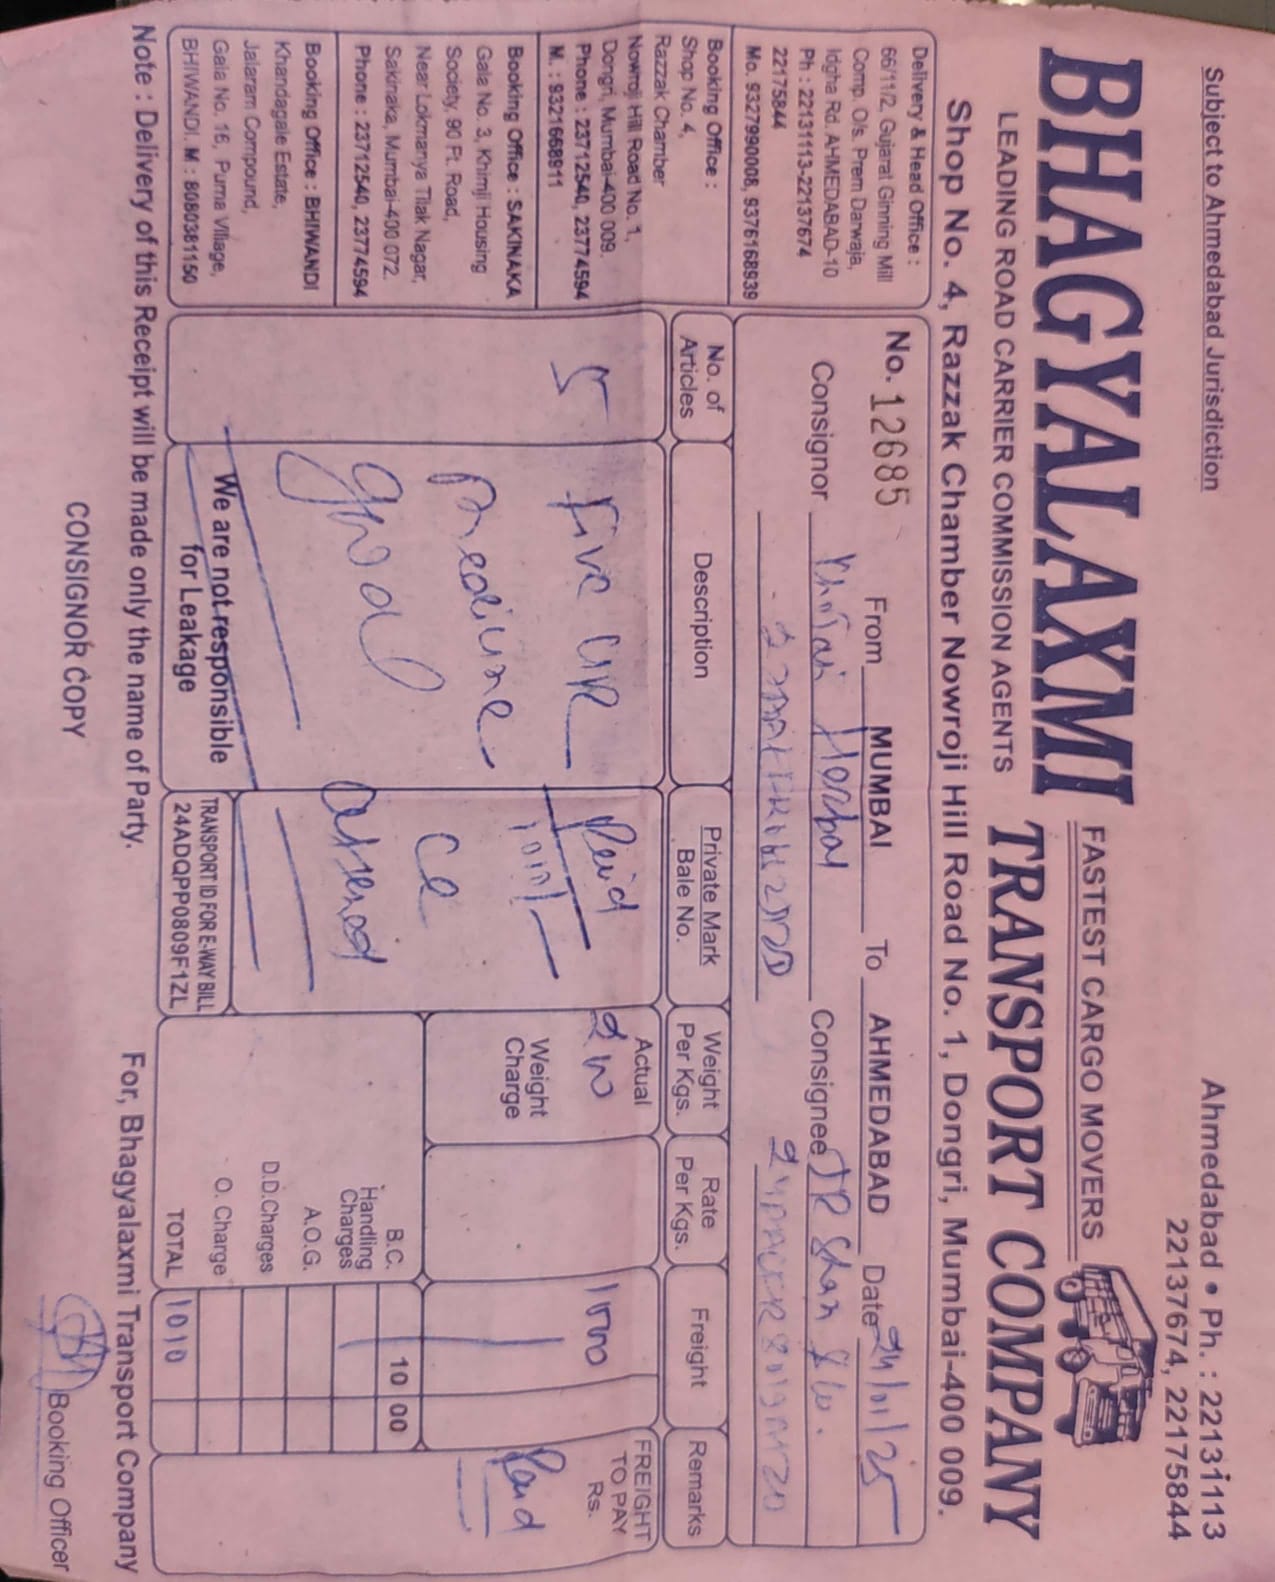 Subject to Ahmedabad Jurisdiction
Ahmedabad • Ph. : 22131113
22137674, 22175844
FASTEST CARGO MOVERS
BHAGYALAXMI TRANSPORT COMPANY
LEADING ROAD CARRIER COMMISSION AGENTS
Shop No. 4, Razzak Chamber Nowroji Hill Road No. 1, Dongri, Mumbai-400 009.
Delivery & Head Office :
66/11/2, Gujarat Ginning Mill
Comp. O/s. Prem Darwaja,
Idgha Rd. AHMEDABAD-10
Ph : 22131113-22137674
22175844
Mo. 9327990008, 9376168939
Booking Office :
Shop No. 4,
Razzak Chamber
Nowroji Hill Road No. 1,
Dongri, Mumbai-400 009.
Phone : 23712540, 23774594
M. : 9321668911
Booking Office : SAKINAKA
Gala No. 3, Khimji Housing
Society, 90 Ft. Road,
Near Lokmanya Tilak Nagar,
Sakinaka, Mumbai-400 072.
Phone : 23712540, 23774594
Booking Office : BHIWANDI
Khandagale Estate,
Jalaram Compound,
Gala No. 16, Purna Village,
BHIWANDI. M : 8080381150
No. 12685 From MUMBAI To AHMEDABAD Date 24/01/25
Consignor Herbal Consignee
No. of Articles
Description
Private Mark
Bale No.
Weight Per Kgs.
Rate Per Kgs.
Freight
Remarks
5
Five
Medicine
Paid
Actual
Weight Charge
1000
FREIGHT TO PAY Rs.
Paid
B.C. 10 00
Handling Charges
A.O.G.
D.D.Charges
O. Charge
TOTAL 1010
We are not responsible for Leakage
TRANSPORT ID FOR E-WAY BILL
24ADQPP0809F1ZL
Note : Delivery of this Receipt will be made only the name of Party.
For, Bhagyalaxmi Transport Company
CONSIGNOR COPY
Booking Officer